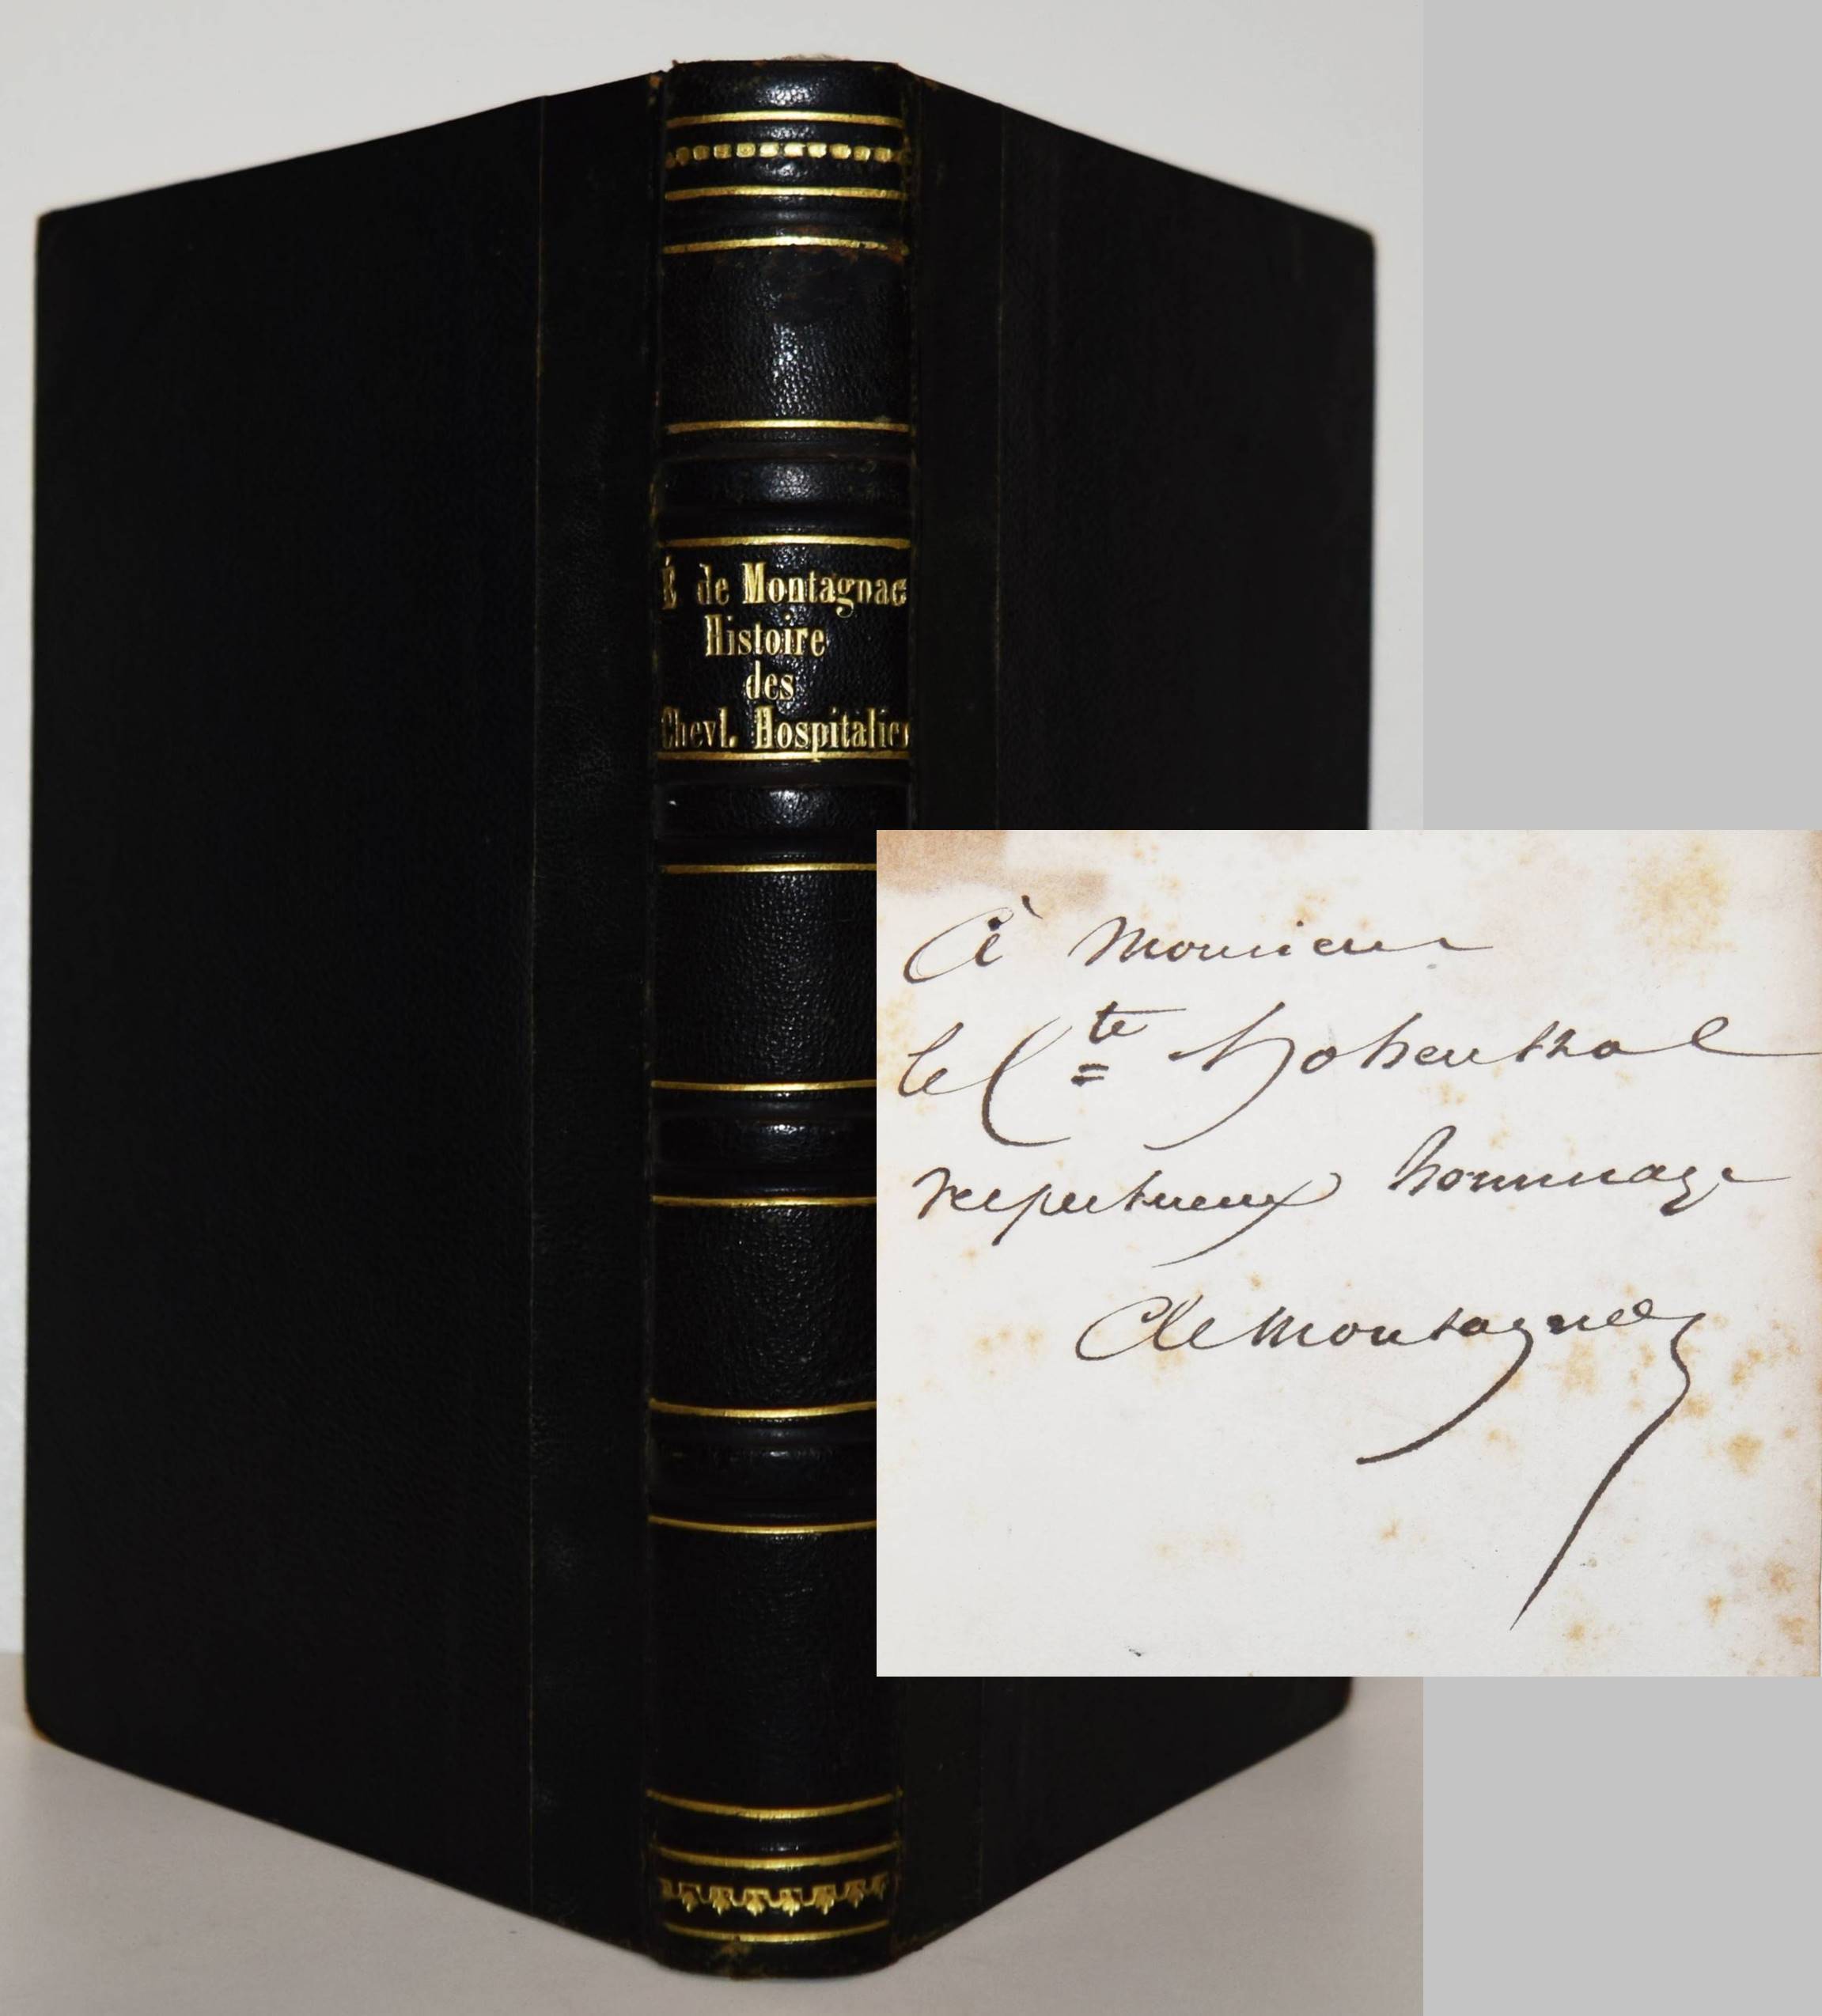 É de Montagnac
Histoire
des
Chevl. Hospitalier
À Monsieur
le Cte Hohenthal
respectueux hommage
E de Montagnac